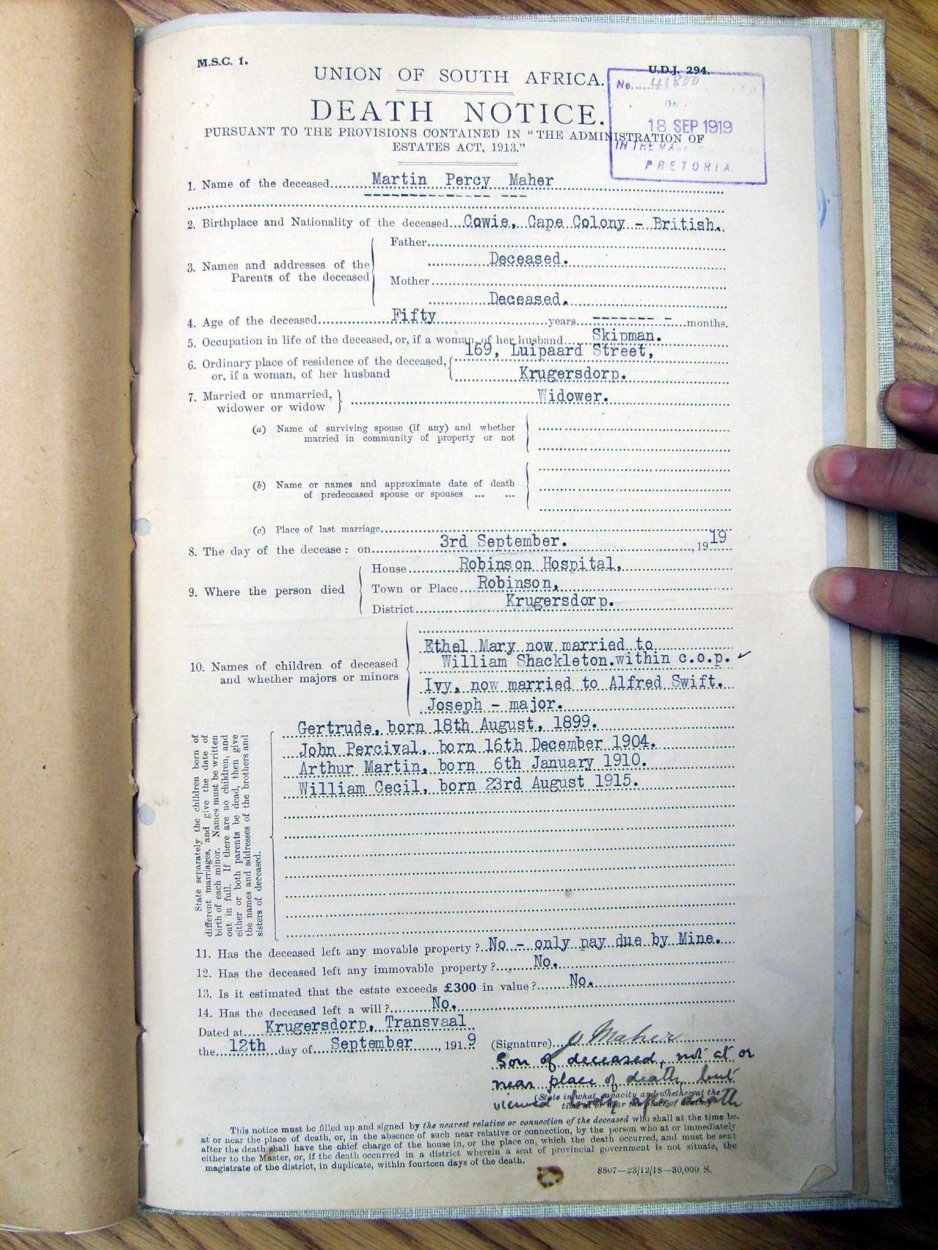 M.S.C. 1.
U.D.J. 294.
UNION OF SOUTH AFRICA.
No. 41800
18 SEP 1919
IN THE
PRETORIA
DEATH NOTICE.
PURSUANT TO THE PROVISIONS CONTAINED IN “THE ADMINISTRATION OF
ESTATES ACT, 1913.”
1. Name of the deceased Martin Percy Maher
2. Birthplace and Nationality of the deceased Cowie, Cape Colony - British.
3. Names and addresses of the Parents of the deceased
Father
Deceased.
Mother
Deceased.
4. Age of the deceased Fifty years ------- - months.
5. Occupation in life of the deceased, or, if a woman, of her husband Skipman.
6. Ordinary place of residence of the deceased, 169, Luipaard Street,
or, if a woman, of her husband Krugersdorp.
7. Married or unmarried, widower or widow Widower.
(a) Name of surviving spouse (if any) and whether
married in community of property or not
(b) Name or names and approximate date of death
of predeceased spouse or spouses ... ...
(c) Place of last marriage
8. The day of the decease: on 3rd September. 1919
9. Where the person died
House Robinson Hospital,
Town or Place Robinson,
District Krugersdorp.
10. Names of children of deceased
and whether majors or minors
Ethel Mary now married to
William Shackleton.within c.o.p. ✓
Ivy, now married to Alfred Swift.
Joseph - major.
Gertrude, born 18th August, 1899.
John Percival, born 16th December 1904.
Arthur Martin, born 6th January 1910.
William Cecil, born 23rd August 1915.
State separately the children born of
different marriages, and give the date of
birth of each minor. Names must be written
out in full. If there are no children, and
either or both parents be dead, then give
the names and addresses of the brothers and
sisters of deceased.
11. Has the deceased left any movable property? No - only pay due by Mine.
12. Has the deceased left any immovable property? No.
13. Is it estimated that the estate exceeds £300 in value? No.
14. Has the deceased left a will? No.
Dated at Krugersdorp, Transvaal
the 12th day of September, 1919
(Signature) Maher
Son of deceased, not at or
near place of death, but
viewed body after death
(State in what capacity and whether at the
time at or near the place of death.)
This notice must be filled up and signed by the nearest relative or connection of the deceased who shall at the time be
at or near the place of death, or, in the absence of such near relative or connection, by the person who at or immediately
after the death shall have the chief charge of the house in, or the place on, which the death occurred, and must be sent
either to the Master, or, if the death occurred in a district wherein a seat of provincial government is not situate, the
magistrate of the district, in duplicate, within fourteen days of the death.
8807—23/12/18—30,000 S.